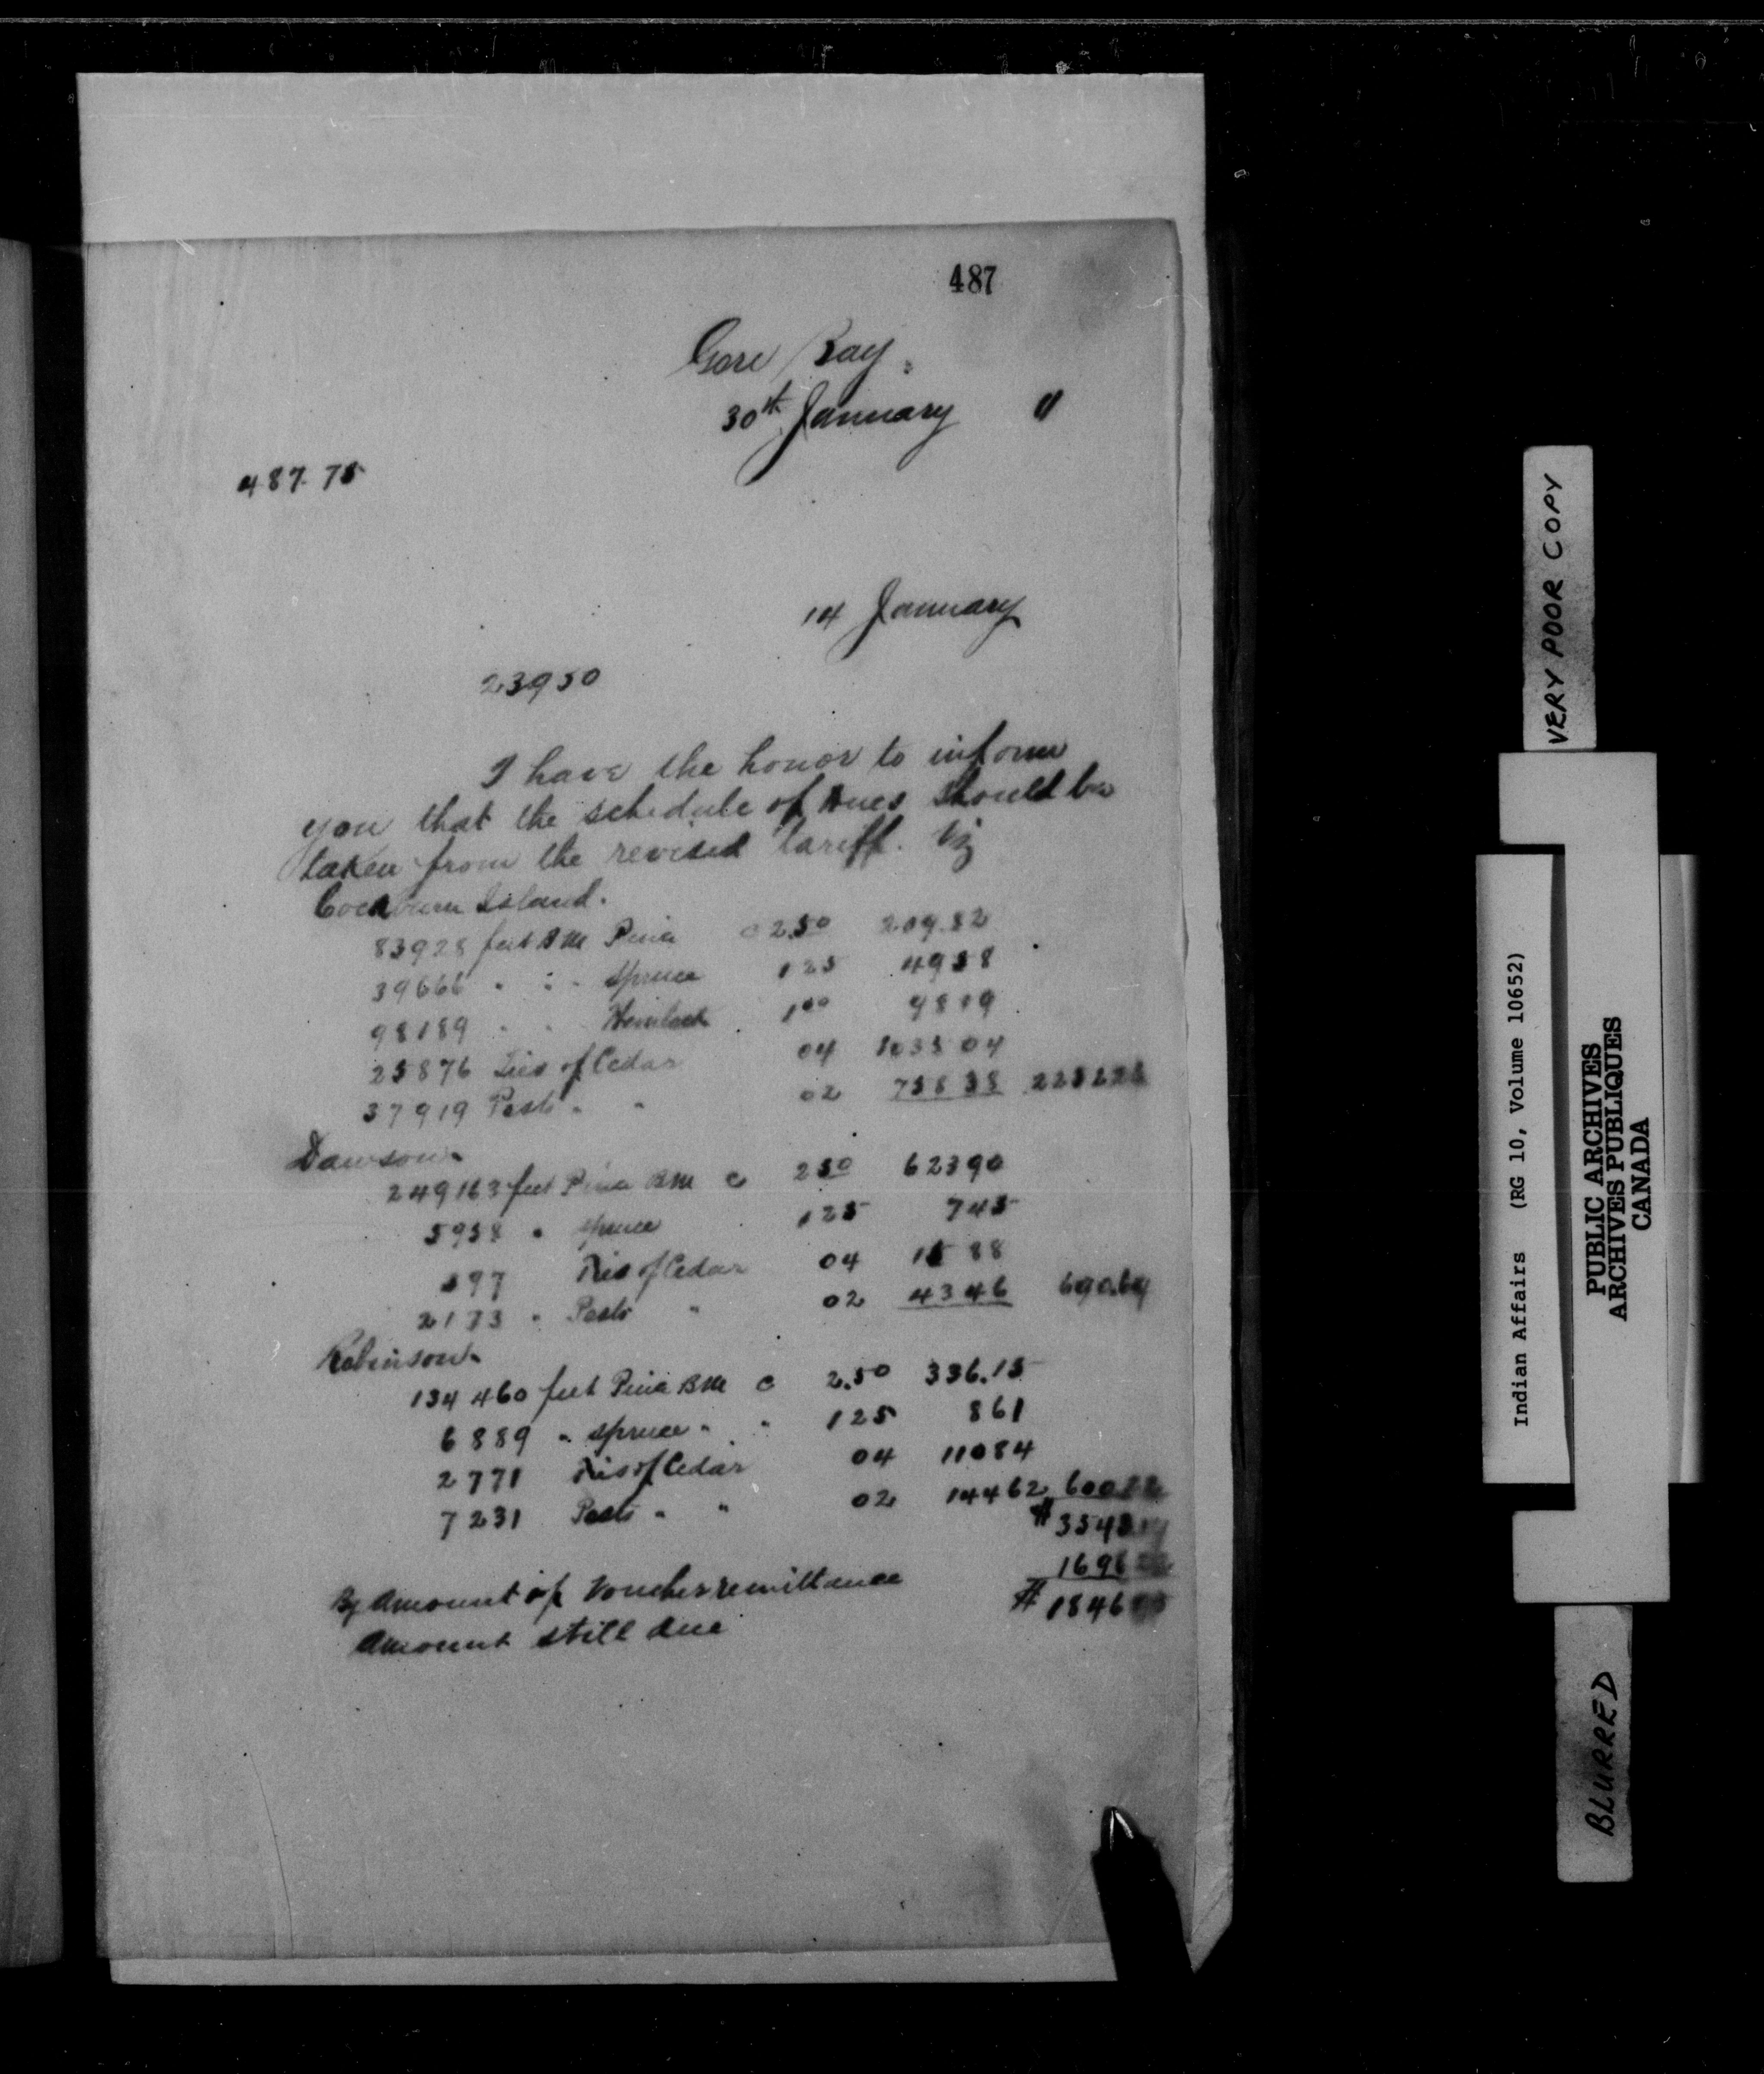 487
Gore Bay.
30th January "
487.75
14 January
23950
I have the honor to inform
you that the schedule of Dues should be
taken from the revised tariff. Viz
Cockburn Island.
83928 feet BM Pine @ 2.50 209.82
39666 " " " Spruce 125 4958
98189 " " Hemlock 1 00 9819
25876 Ties of Cedar 04 1035 04
37919 Posts " " 02 758 38
Dawson.
249163 feet Pine BM @ 2 50 62390
5958 " Spruce 125 745
397 Ties of Cedar 04 15 88
2173 " Posts " 02 43 46 690.69
Robinson.
134 460 feet Pine BM @ 2.50 336.15
6889 " Spruce " " 125 861
2771 Ties of Cedar 04 11084
7231 Posts " " 02 14462
By amount of Voucher remittance
Amount still due
VERY POOR COPY
Indian Affairs (RG 10, Volume 10652)
PUBLIC ARCHIVES
ARCHIVES PUBLIQUES
CANADA
BLURRED